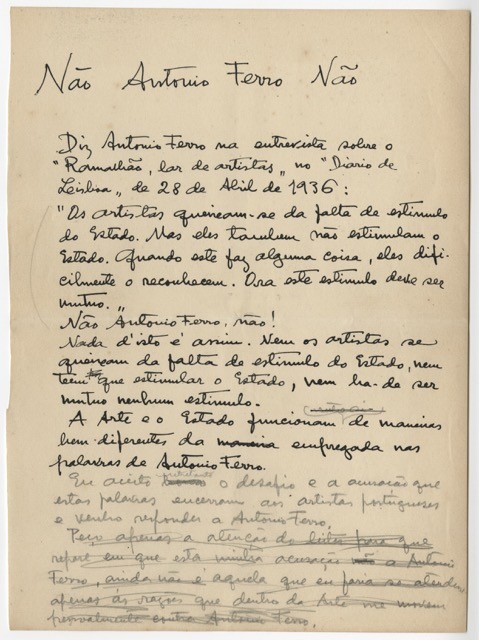 Não Antonio Ferro Não
Diz Antonio Ferro na entrevista sobre o
"Ramalhão, lar de artistas„ no "Diario de
Lisboa„ de 28 de Abril de 1936:
"Os artistas queixam-se da falta de estimulo
do Estado. Mas eles tambem não estimulam o
Estado. Quando este faz alguma coisa, eles difi-
cilmente o reconhecem. Ora este estimulo deve ser
mutuo.„
Não Antonio Ferro, não!
Nada d'isto é assim. Nem os artistas se
queixam da falta de estimulo do Estado, nem
teem que estimular o Estado, nem ha-de ser
mutuo nenhum estimulo.
A Arte e o Estado funcionam de maneiras
bem diferentes da maneira empregada nas
palavras de Antonio Ferro.
Eu aceito o desafio e a acusação que
estas palavras encerram aos artistas portugueses
e venho responder a Antonio Ferro.
Peço apenas a atenção do leitor para que
repare em que esta minha acusação não a Antonio
Ferro, ainda não é aquela que eu faria se atender
apenas ás razões que dentro da Arte me movem
pessoalmente contra Antonio Ferro.